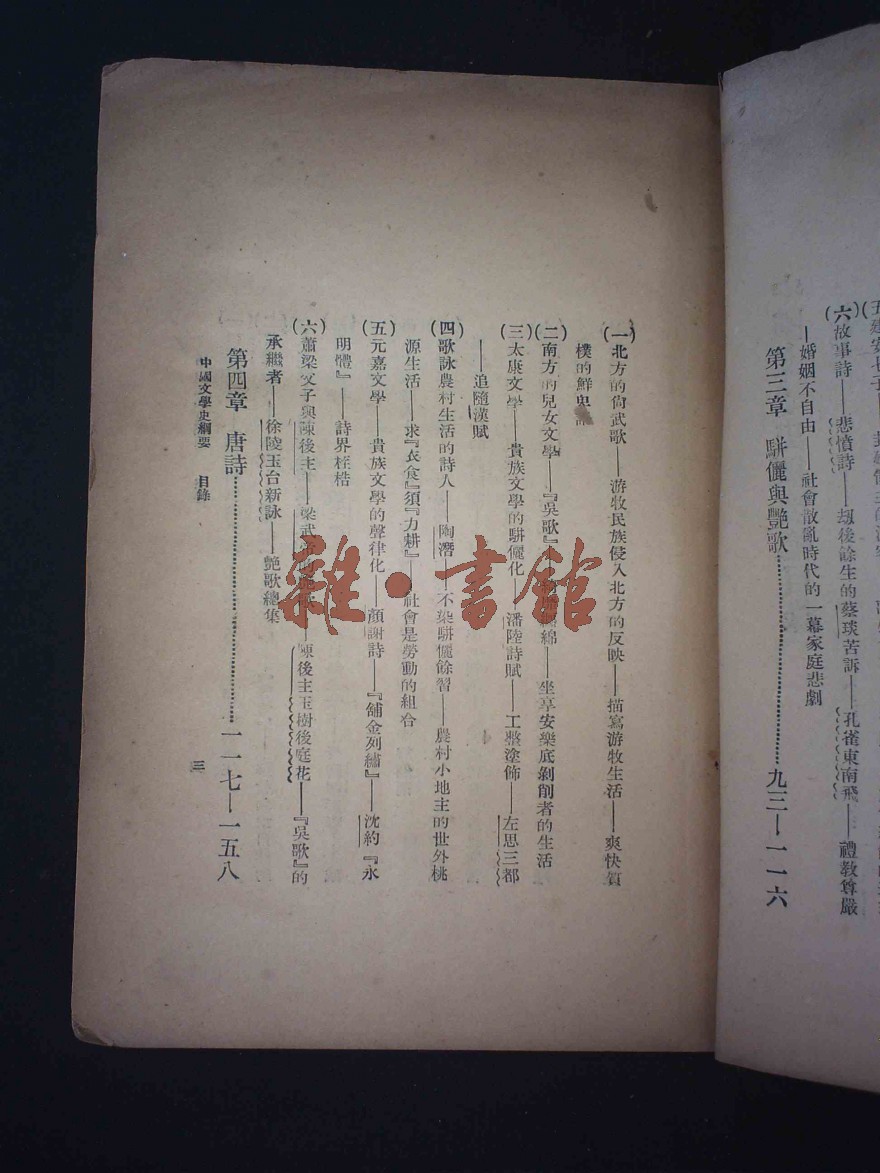 (六)故事詩——悲憤詩——劫後餘生的蔡琰苦訴——孔雀東南飛——禮教尊嚴
——婚姻不自由——社會散亂時代的一幕家庭悲劇
第三章 駢儷與艷歌……九三—一一六
(一)北方的尙武歌——游牧民族侵入北方的反映——描寫游牧生活——爽快質
樸的鮮卑
(二)南方的兒女文學——『吳歌』綿——坐享安樂底剝削者的生活
(三)太康文學——貴族文學的駢儷化——潘陸詩賦——工整塗飾——左思三都
——追隨漢賦
(四)歌詠農村生活的詩人——陶潛——不染駢儷餘習——農村小地主的世外桃
源生活——求『衣食』須『力耕』——社會是勞動的組合
(五)元嘉文學——貴族文學的聲律化——顏謝詩——『舖金列繡』——沈約『永
明體』——詩界桎梏
(六)蕭梁父子與陳後主——梁武帝——陳後主玉樹後庭花——『吳歌』的
承繼者——徐陵玉台新詠——艷歌總集
第四章 唐詩……一一七—一五八
中國文學史綱要 目錄 三
雜·書館